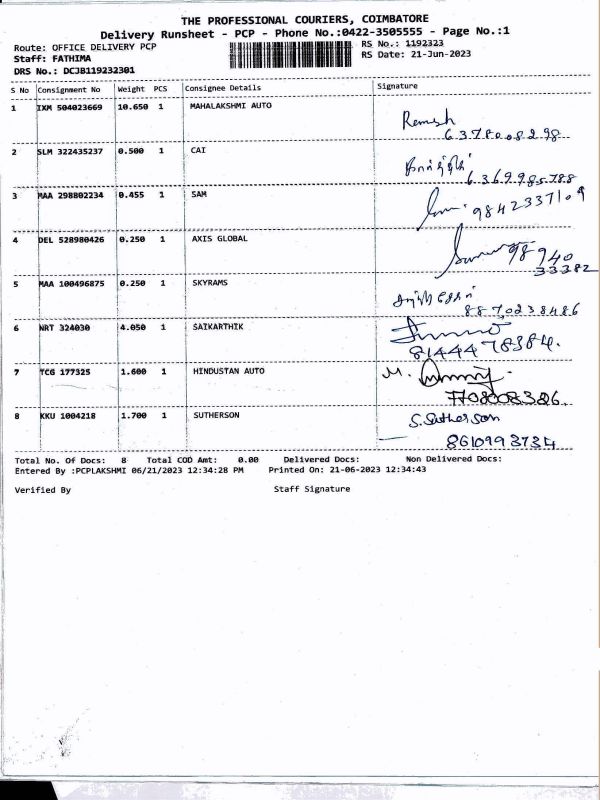 THE PROFESSIONAL COURIERS, COIMBATORE
Delivery Runsheet - PCP - Phone No.:0422-3505555 - Page No.:1
Route: OFFICE DELIVERY PCP
RS No.: 1192323
Staff: FATHIMA
RS Date: 21-Jun-2023
DRS No.: DCJB119232301
S No Consignment No Weight PCS Consignee Details Signature
1 IXM 504023669 10.650 1 MAHALAKSHMI AUTO
Remesh
6378008298
2 SLM 322435237 0.500 1 CAI
6369985788
3 MAA 298802234 0.455 1 SAM
9842337109
4 DEL 528980426 0.250 1 AXIS GLOBAL
98940
33382
5 MAA 100496875 0.250 1 SKYRAMS
8870238486
6 NRT 324030 4.050 1 SAIKARTHIK
8144478384.
7 TCG 177325 1.600 1 HINDUSTAN AUTO
M.
8 KKU 1004218 1.700 1 SUTHERSON
S. Sutherson
8610993734
Total No. Of Docs: 8 Total COD Amt: 0.00 Delivered Docs: Non Delivered Docs:
Entered By :PCPLAKSHMI 06/21/2023 12:34:28 PM Printed On: 21-06-2023 12:34:43
Verified By Staff Signature